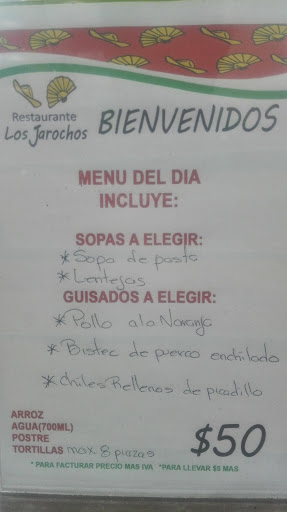 Restaurante
Los Jarochos
BIENVENIDOS
MENU DEL DIA
INCLUYE:
SOPAS A ELEGIR:
* Sopa de pasta
* Lentejas
GUISADOS A ELEGIR:
* Pollo a la Naranja
* Bistec de puerco enchilado
* Chiles Rellenos de picadillo
ARROZ
AGUA(700ML)
POSTRE
TORTILLAS max 8 piezas
$50
* PARA FACTURAR PRECIO MAS IVA *PARA LLEVAR $5 MAS